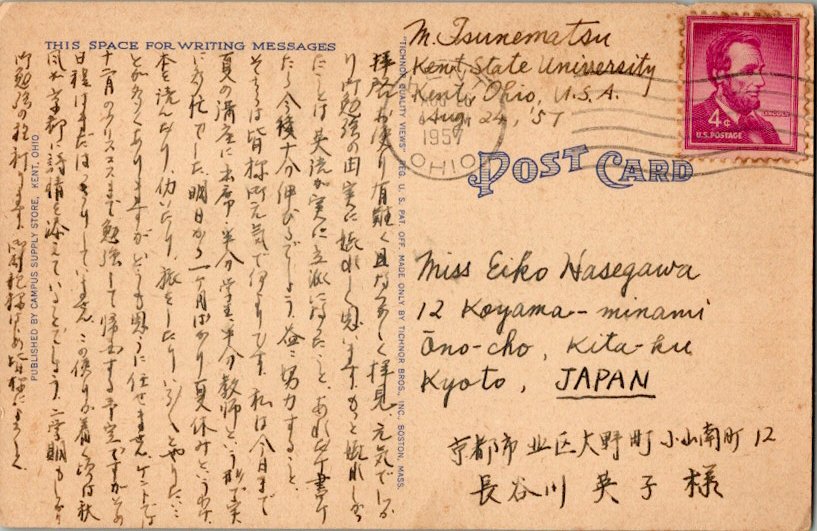 THIS SPACE FOR WRITING MESSAGES
拝啓 お便り有難く且なつかしく拝見、元気でいる
り御勉強の由実に嬉しく思います。もっと嬉しい
ことは英語が実に立派になったこと、あれだけ書け
たら今後十分伸びるでしょう。益々努力すること。
そちらは皆様御元気で何よりです。私は今日まで
夏の講座に出席、半分学生半分教師という形で実
に多忙でした。明日から一ヶ月ばかり夏休みという
本を読んだり、働いたり、旅をしたりいろいろとやりたい
ことが多くありますがどうも思うに任せません。ケントでは
十二月のクリスマスまで勉強して帰国する予定ですがその
日程はまだはっきりしていません。この便りが着く頃は秋
風が京都に詩情を添えていることでしょう。二学期もしっかり
御勉強の程祈ります。御両親様はじめ皆様によろしく
PUBLISHED BY CAMPUS SUPPLY STORE, KENT, OHIO
"TICHNOR QUALITY VIEWS" REG. U. S. PAT. OFF. MADE ONLY BY TICHNOR BROS., INC., BOSTON, MASS.
M. Tsunematsu
Kent State University
Kent, Ohio, U.S.A.
Aug. 24, '57
1957
OHIO
4¢
LINCOLN
U.S. POSTAGE
POST CARD
Miss Eiko Hasegawa
12 Koyama-minami
Ōno-cho, Kita-ku
Kyoto, JAPAN
京都市 北区大野町小山南町12
長谷川 英子 様